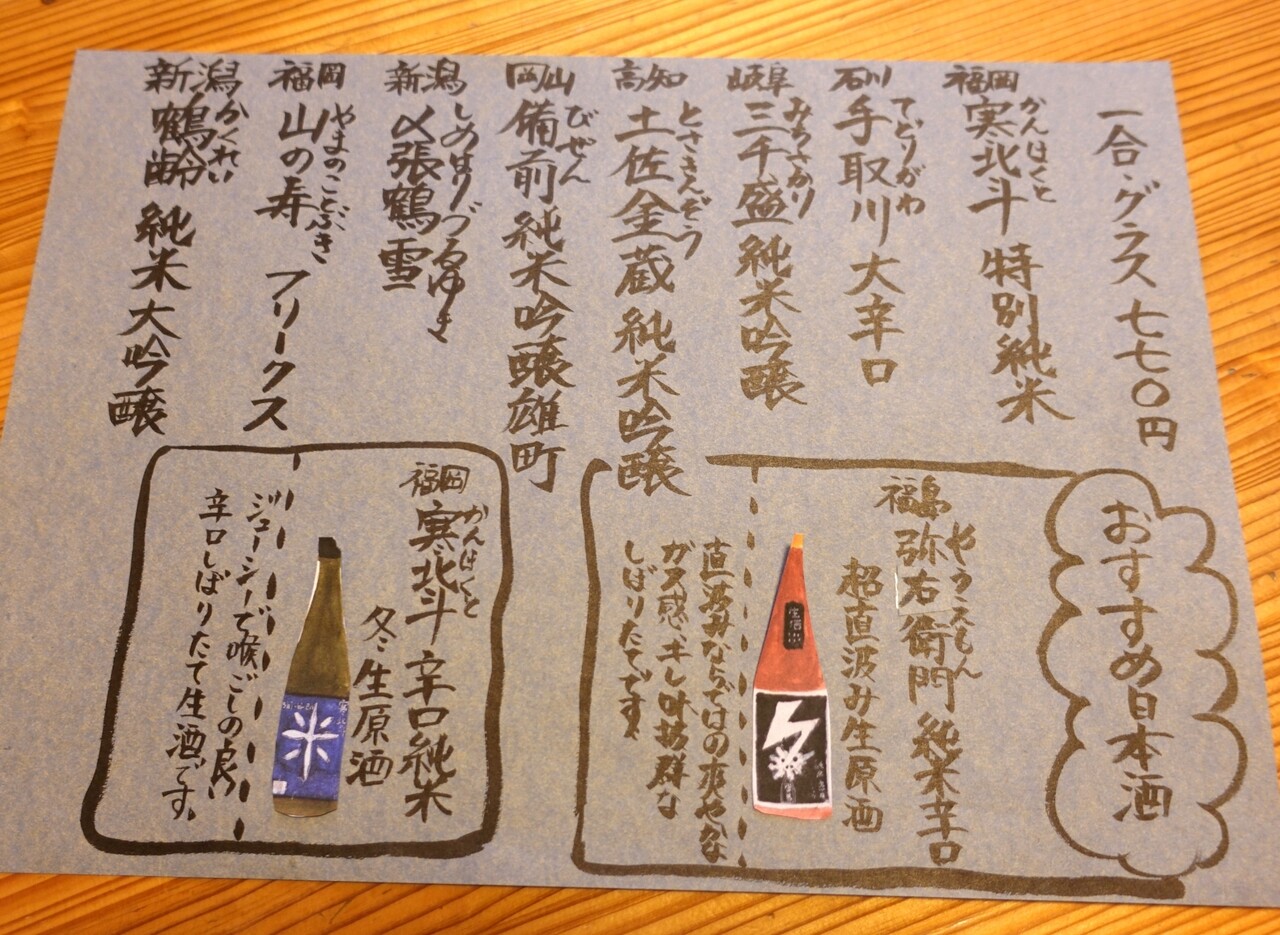 一合・グラス 七七〇円
福岡
かんほくと
寒北斗 特別純米
石川
てどりがわ
手取川 大辛口
岐阜
みちさかり
三千盛 純米吟醸
高知
とさきんぞう
土佐金蔵 純米吟醸
岡山
びぜん
備前 純米吟醸 雄町
新潟
しめはりづるゆき
〆張鶴 雪
福岡
やまのことぶき
山の寿 フリークス
新潟
かくれい
鶴齢 純米大吟醸
おすすめ日本酒
福島
やうえもん
弥右衛門 純米辛口
超直汲み生原酒
直汲みならではの爽やかな
ガス感、キレ味抜群な
しぼりたてです。
福岡
かんほくと
寒北斗 辛口純米
冬 生原酒
米
ジューシーで喉ごしの良い
辛口しぼりたて生酒です。